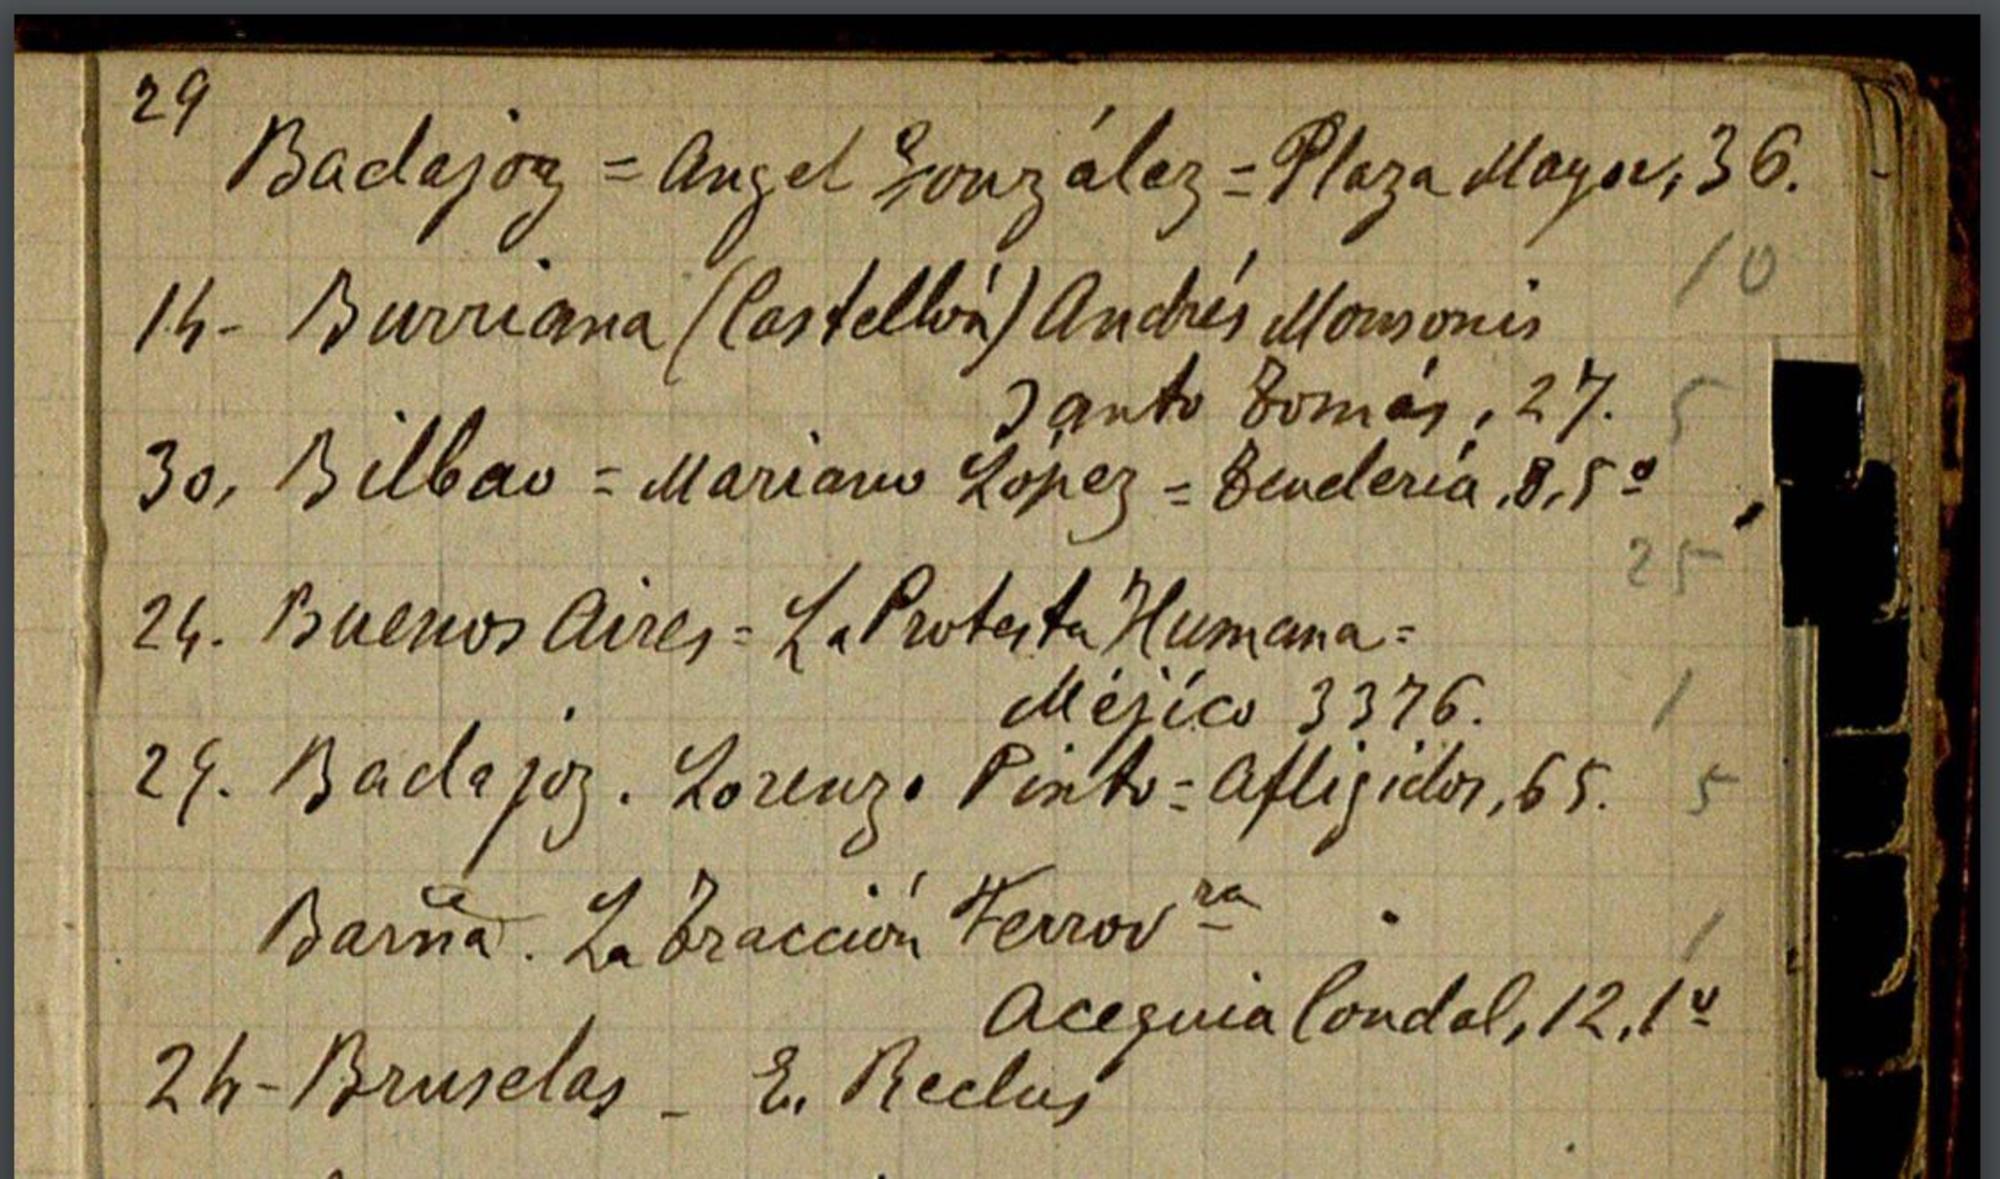 29
Badajoz = Angel González = Plaza Mayor, 36.
10
14- Burriana (Castellón) Andrés Monsonis
Santo Tomás, 27. 5
30, Bilbao = Mariano López = Tendería, 8, 5º
25
24. Buenos Aires = La Protesta Humana =
Méjico 3376. 1
29. Badajoz. Lorenzo Pinto = Afligidos, 65. 5
Barna. La Tracción Ferrovra 1
Acequia Condal, 12, 1º
24- Bruselas - E. Reclus